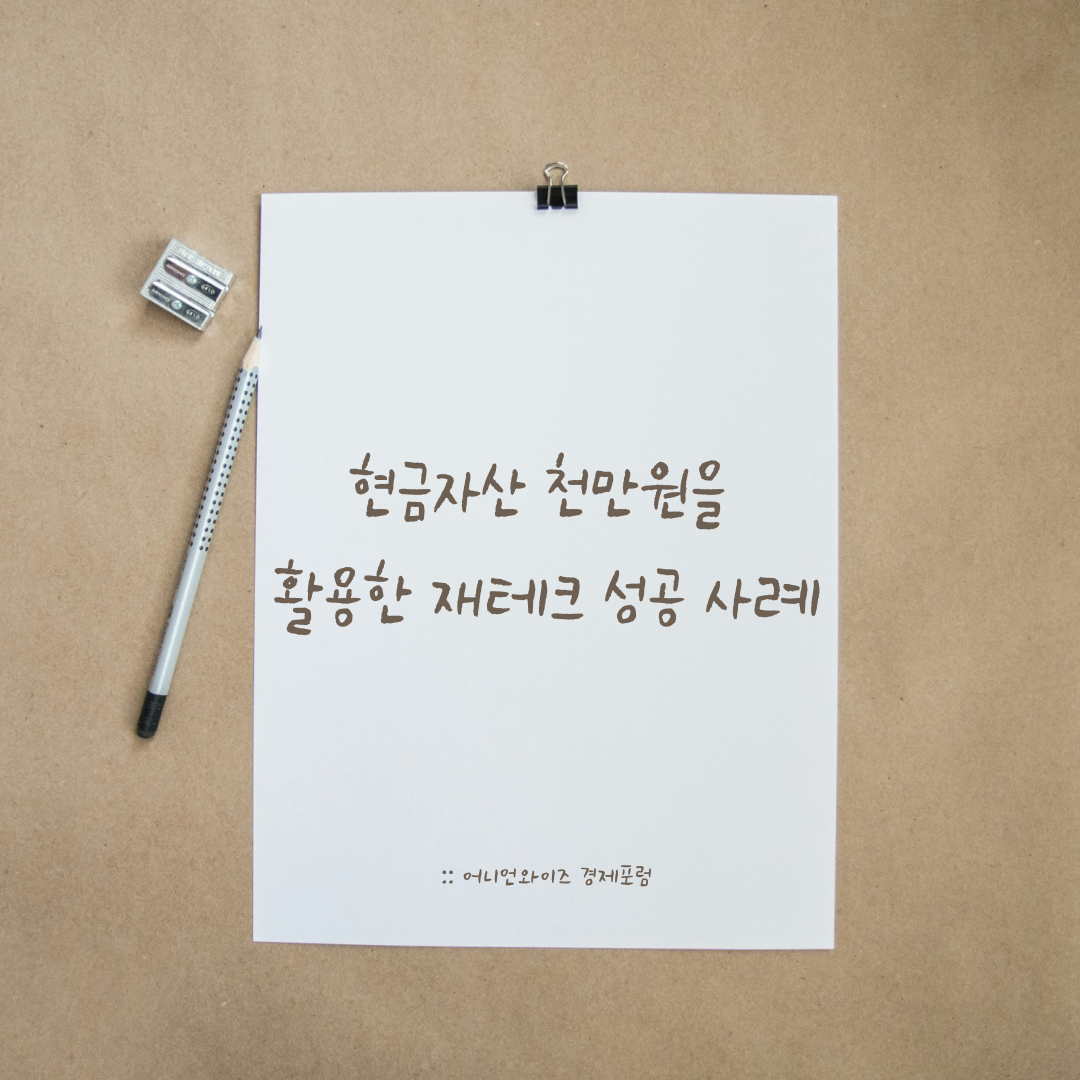 현금자산 천만원을
활용한 재테크 성공 사례
:: 어니언와이즈 경제포럼